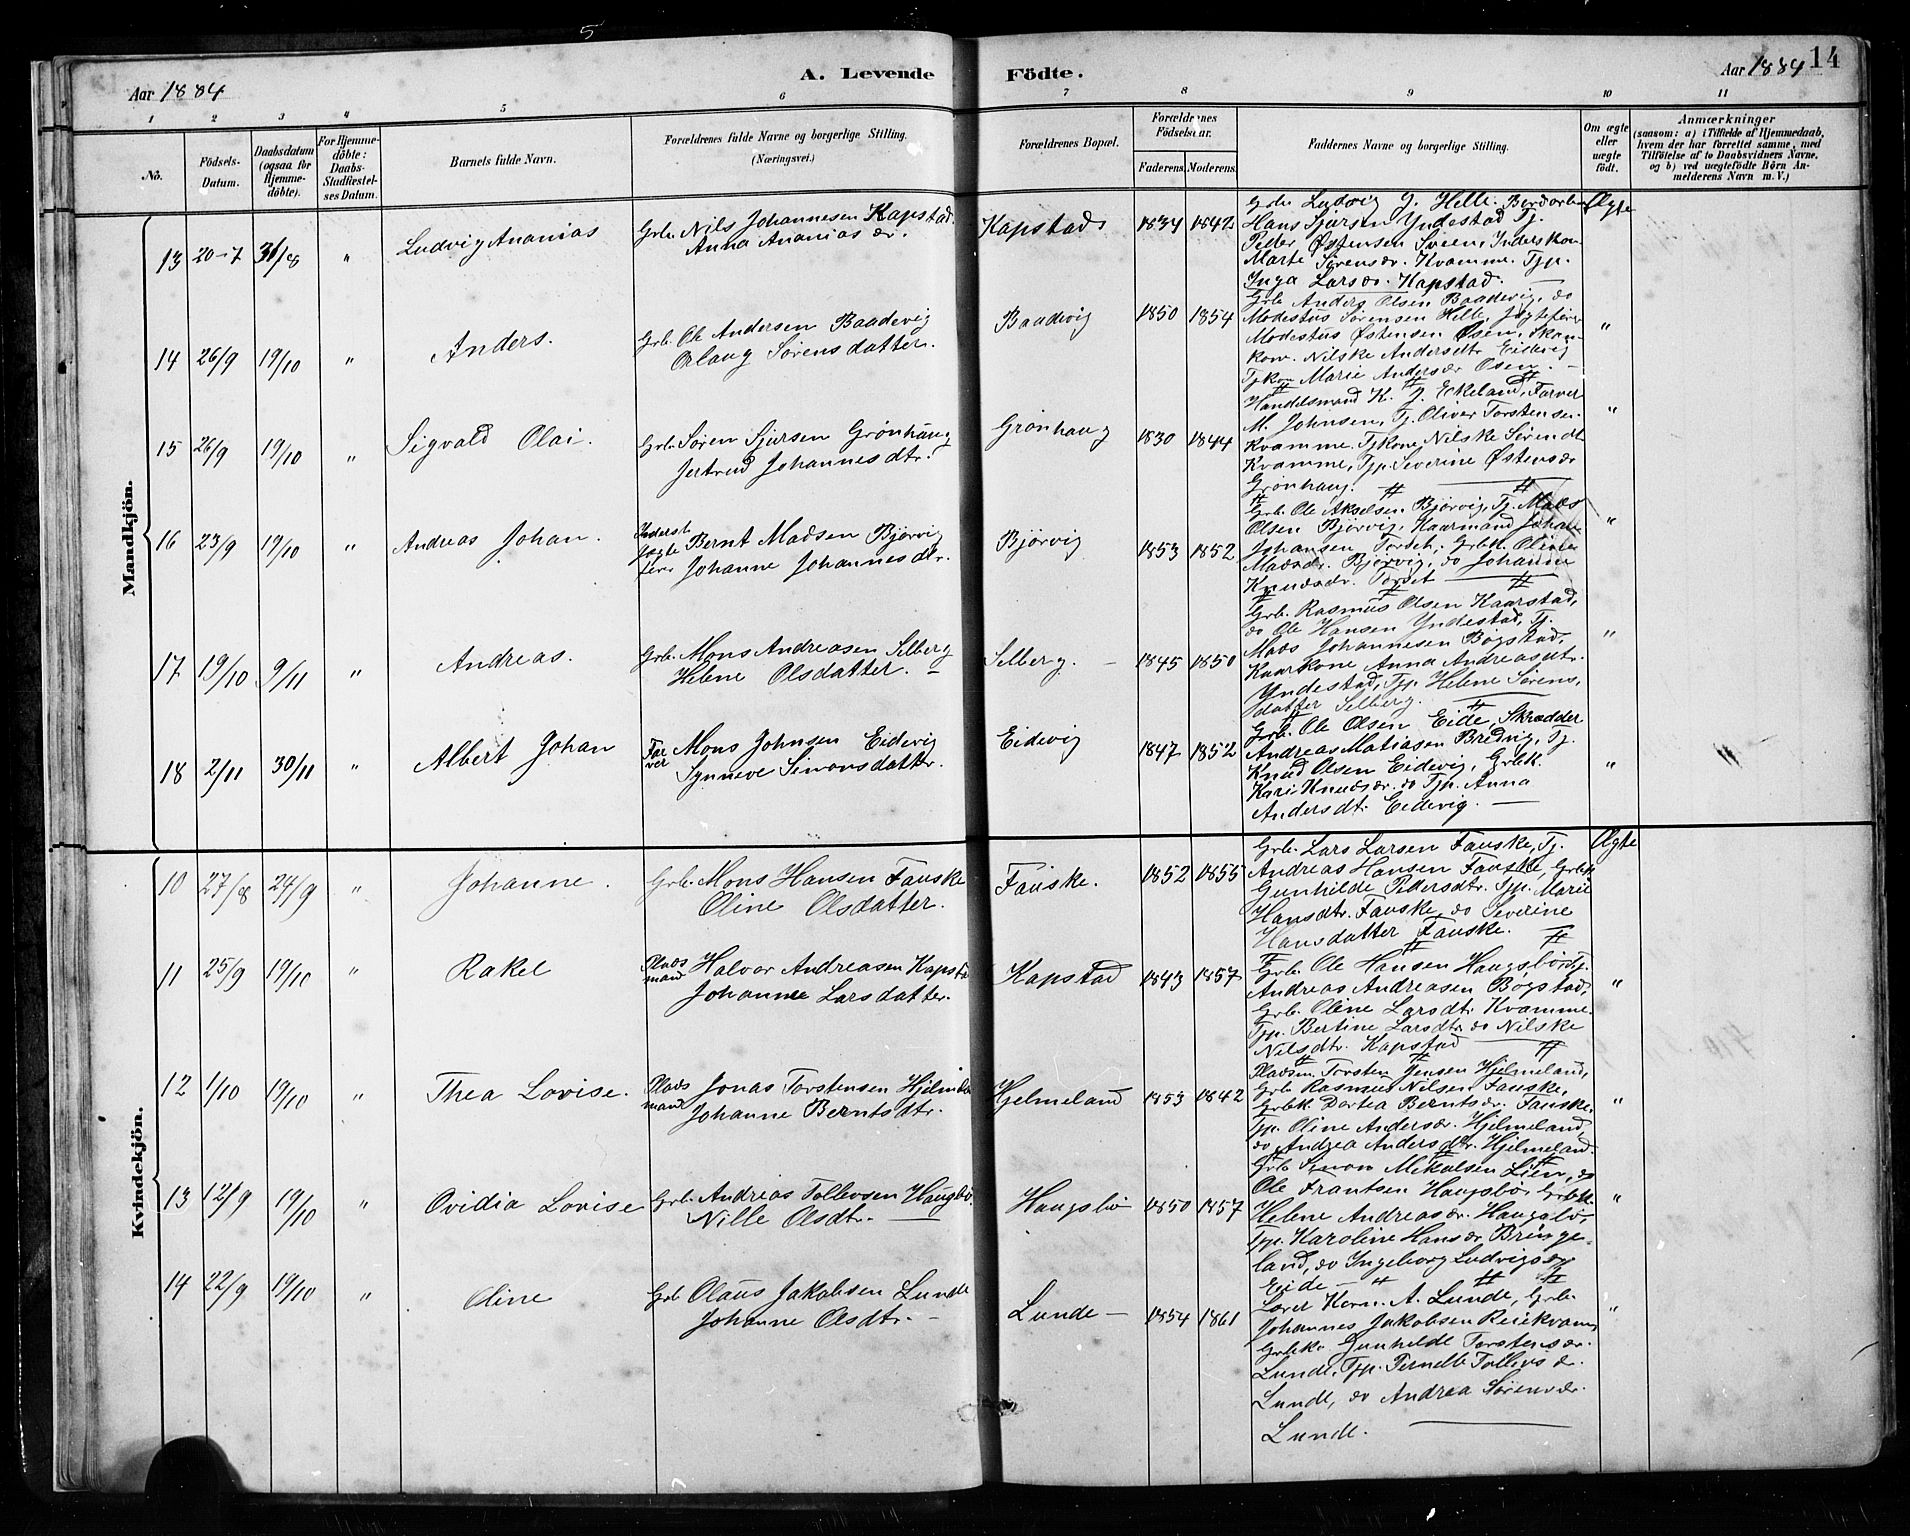 5
14
Aar 1884
A. Levende
Födte.
Aar 1884
1 2 3 4 5 6 7 8 9 10 11
No.
Födsels-
Datum.
Daabsdatum
(ogsaa for
Hjemme-
döbte).
For Hjemme-
döbte:
Daabs-
Stadfæstel-
ses Datum.
Barnets fulde Navn.
Forældrenes fulde Navne og borgerlige Stilling.
(Næringsvei.)
Forældrenes Bopæl.
Forældrenes
Födselsaar.
Faderens. Moderens.
Faddernes Navne og borgerlige Stilling.
Om ægte
eller
uægte
født.
Anmærkninger
(saasom: a) i Tilfælde af Hjemmedaab,
hvem der har forrettet samme, med
Tilföielse af to Daabsvidners Navne,
og b) ved uægtefödte Börn An-
melderens Navn m. V.)
Mandkjön.
13 20-7 31/8 " Ludvig Ananias
Grb. Nils Johannesen Kapstad.
Anna Ananiasdr.
Kapstad 1834 1842
Grb. Ludvig J. Helle.
Hans Sjursen Yndestad Tj.
Peder Østensen Sveen, Inderskon.
Marte Sørensdr. Kvamme. Tjp.
Inga Larsdr. Kapstad.
Ægte
14 26/9 19/10 " Anders.
Grb. Ole Andersen Baadevig
Orlaug Sørensdatter.
Baadevig 1850 1854
Grb. Anders Olsen Baadevig, do
Modestus Sørensen Helle, Jægtefører
Modestus Østensen Øsen, Skom-
kow. Nilske Andersdtr. Eidevig
Tjkon Marie Andersdr Osen. –
"
15 26/9 19/10 " Sigvald Olai.
Grb. Søren Sjursen Grønhaug
Jertrud Johannesdtr.
Grønhaug 1830 1844
Handelsmand K. J. Ekeland, Farver
M. Johnsen, Tj. Oliver Torstensen
Kvamme. Tjkone, Nilske Sørendt.
Kvamme, Tjp. Severine Østensdr
Grønhaug.
"
16 23/9 19/10 " Andreas Johan.
Inderst Jægte fører Bernt Madsen Bjørvig
Johanne Johannesdtr.
Bjørvig 1853 1852
Grb. Ole Akselsen Bjørvig, Tj. Mads
Olsen Bjørvig, Kaarmand Johan
Johansen Torset, Grbk. Oline
Madsdr. Bjørvig, do Johanne
Knudsdr. Torset
"
17 19/10 9/11 " Andreas.
Grb. Mons Andreasen Selberg
Helene Olsdatter. –
Selberg. – 1845 1850
Grb. Rasmus Olsen Kaarstad,
do Ole Hansen Yndestad, Tj.
Mads Johannesen Bøgstad,
Kaarkone Anna Andreasdtr.
Yndestad, Tjp. Helene Sørens,
datter Selberg.
"
18 2/11 30/11 " Albert Johan
Far ver Mons Johnsen Eidevig
Synneve Simonsdatter.
Eidevig 1847 1852
Grb. Ole Olsen Eide, Skrædder
Andreas Matiasen Bredvig, Tj.
Knud Olsen Eidevig, Grbk.
Kari Knudsdr. do Tjp. Anna
Andersdt. Eidevig. –
"
Kvindekjön.
10 27/8 24/9 " Johanne.
Grb. Mons Hansen Fauske
Oline Olsdatter.
Fauske. 1852 1855
Grb. Lars Larsen Fauske, Tj.
Andreas Hansen Fauske, Grbk.
Gunhilde Pedersdtr. Tjp. Marie
Hansdtr. Fauske, do Severine
Hansdatter Fauske.
Ægte
11 25/9 19/10 " Rakel
Plads mand Halvor Andreasen Kapsta
Johanne Larsdatter.
Kapstad 1843 1857
Grb. Ole Hansen Haugsbø, Tj.
Andreas Andreasen Bøgstad,
Grb. Oline Larsdtr. Kvamme.
Tjp. Bertine Larsdtr. do Nilske
Nilsdtr. Kapstad
"
12 1/10 19/10 " Thea Lovise.
Plads mand Jonas Torstensen Hjelmela
Johanne Berntsdtr.
Hjelmeland 1853 1842
Pladsm. Torsten Jensen Hjelmeland,
Grb. Rasmus Nilsen Fauske,
Grbk. Dortea Berntsdr. Fauske.
Tjp. Oline Andersdr. Hjelmeland,
do Andrea Andersdtr. Hjelmeland.
"
13 12/9 19/10 " Ovidia Lovise
Grb. Andreas Tollevsen Haugsbø.
Nille Olsdtr.
Haugsbø 1850 1857
Grb. Simon Mikalsen Lien, do
Ole Frantsen Haugsbø, Grbk.
Helene Andreasdr. Haugsbø,
Tjp. Karoline Hansdr Bringe-
land, do Ingeborg Ludvigsdr
Eide –
"
14 22/9 19/10 " Oline
Grb Olaus Jakobsen Lunde
Johanne Olsdtr. –
Lunde – 1854 1861
Lærer Herm. A. Lunde, Grb.
Johannes Jakobsen Reiekvam,
Grbk. Gunhilde Torstensdr.
Lunde, Tjp. Pernelle Tollevsdr.
Lunde, do Andrea Sørensdr.
Lunde.
"